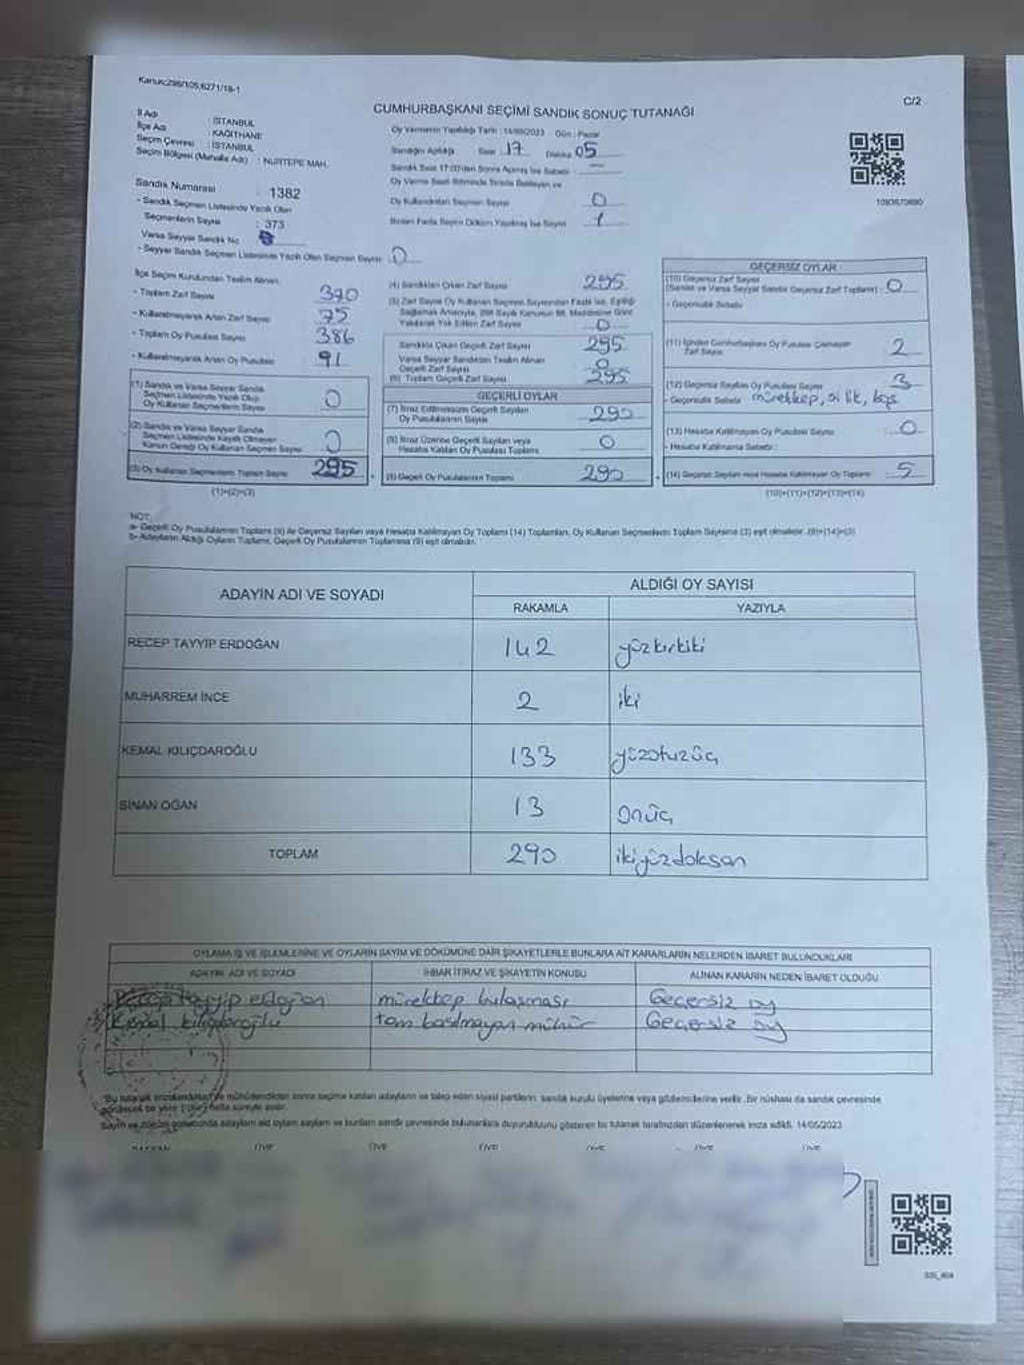 Kanun:298/105;6271/18-1
C/2
CUMHURBAŞKANI SEÇİMİ SANDIK SONUÇ TUTANAĞI
İl Adı : İSTANBUL
İlçe Adı : KAĞITHANE
Seçim Çevresi : İSTANBUL
Seçim Bölgesi (Mahalle Adı) : NURTEPE MAH.
Oy Vermenin Yapıldığı Tarih : 14/05/2023 Gün : Pazar
Sandığın Açıldığı Saat : 17 Dakika 05
Sandık Saat 17:00'den Sonra Açılmış İse Sebebi : —
Oy Verme Saati Bitiminde Sırada Bekleyen ve
Oy Kullandırılan Seçmen Sayısı 0
Birden Fazla Sayım Döküm Yapılmış İse Sayısı 1
1093670690
Sandık Numarası : 1382
- Sandık Seçmen Listesinde Yazılı Olan
Seçmenlerin Sayısı : 373
Varsa Seyyar Sandık No
- Seyyar Sandık Seçmen Listesinde Yazılı Olan Seçmen Sayısı 0
İlçe Seçim Kurulundan Teslim Alınan;
- Toplam Zarf Sayısı 370
- Kullanılmayarak Artan Zarf Sayısı 75
- Toplam Oy Pusulası Sayısı 386
- Kullanılmayarak Artan Oy Pusulası 91
(1) Sandık ve Varsa Seyyar Sandık
Seçmen Listesinde Yazılı Olup
Oy Kullanan Seçmenlerin Sayısı 0
(2) Sandık ve Varsa Seyyar Sandık
Seçmen Listesinde Kayıtlı Olmayan
Kanun Gereği Oy Kullanan Seçmen Sayısı 0
(3) Oy Kullanan Seçmenlerin Toplam Sayısı 295
(1)+(2)=(3)
(4) Sandıktan Çıkan Zarf Sayısı 295
(5) Zarf Sayısı Oy Kullanan Seçmen Sayısından Fazla İse, Eşitliği
Sağlamak Amacıyla, 298 Sayılı Kanunun 98. Maddesine Göre
Yakılarak Yok Edilen Zarf Sayısı 0
Sandıkta Çıkan Geçerli Zarf Sayısı 295
Varsa Seyyar Sandıktan Teslim Alınan
Geçerli Zarf Sayısı 0
(6) Toplam Geçerli Zarf Sayısı 295
GEÇERLİ OYLAR
(7) İtiraz Edilmeksizin Geçerli Sayılan
Oy Pusulasının Sayısı 290
(8) İtiraz Üzerine Geçerli Sayılan veya
Hesaba Katılan Oy Pusulası Toplamı 0
(9) Geçerli Oy Pusulalarının Toplamı 290
GEÇERSİZ OYLAR
(10) Geçersiz Zarf Sayısı
(Sandık ve Varsa Seyyar Sandık Geçersiz Zarf Toplamı) : 0
- Geçersizlik Sebebi
(11) İçinden Cumhurbaşkanı Oy Pusulası Çıkmayan
Zarf Sayısı 2
(12) Geçersiz Sayılan Oy Pusulası Sayısı 3
- Geçersizlik Sebebi mürekkep, silik, boş
(13) Hesaba Katılmayan Oy Pusulası Sayısı 0
- Hesaba Katılmama Sebebi :
(14) Geçersiz Sayılan veya Hesaba Katılmayan Oy Toplamı 5
(10)+(11)+(12)+(13)=(14)
NOT:
a- Geçerli Oy Pusulalarının Toplamı (9) ile Geçersiz Sayılan veya Hesaba Katılmayan Oy Toplamı (14) Toplamları, Oy Kullanan Seçmenlerin Toplam Sayısına (3) eşit olmalıdır. (9)+(14)=(3)
b- Adayların Aldığı Oyların Toplamı, Geçerli Oy Pusulalarının Toplamına (9) eşit olmalıdır.
ADAYIN ADI VE SOYADI
ALDIĞI OY SAYISI
RAKAMLA YAZIYLA
RECEP TAYYİP ERDOĞAN 142 yüzkırkiki
MUHARREM İNCE 2 iki
KEMAL KILIÇDAROĞLU 133 yüzotuzüç
SİNAN OĞAN 13 onüç
TOPLAM 290 ikiyüzdoksan
OYLAMA İŞ VE İŞLEMLERİNE VE OYLARIN SAYIM VE DÖKÜMÜNE DAİR ŞİKAYETLERLE BUNLARA AİT KARARLARIN NELERDEN İBARET BULUNDUKLARI
ADAYIN ADI VE SOYADI İHBAR İTİRAZ VE ŞİKAYETİN KONUSU ALINAN KARARIN NEDEN İBARET OLDUĞU
Recep Tayyip erdoğan mürekkep bulaşması Geçersiz oy
Kemal kılıçdaroğlu tam basılmayan mühür Geçersiz oy
BAŞKAN ÜYE ÜYE ÜYE ÜYE ÜYE